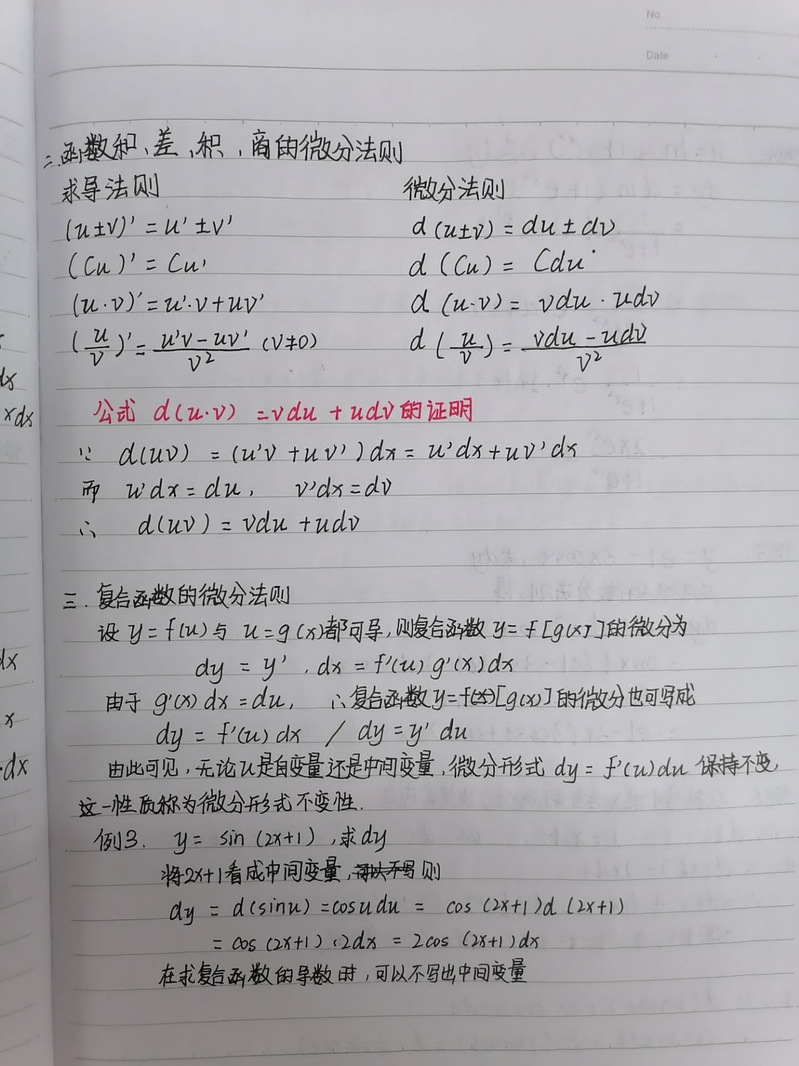 No.
Date
二.函数和、差、积、商的微分法则
求导法则 微分法则
(u±v)' = u' ± v' d(u±v) = du ± dv
(Cu)' = Cu' d(Cu) = Cdu
(u·v)' = u'·v + uv' d(u·v) = vdu · udv
(u/v)' = (u'v - uv')/v² (v≠0) d(u/v) = (vdu - udv)/v²
公式 d(u·v) = vdu + udv 的证明
∵ d(uv) = (u'v + uv')dx = u'dx + uv'dx
而 u'dx = du, v'dx = dv
∴ d(uv) = vdu + udv
三.复合函数的微分法则
设 y=f(u) 与 u=g(x)都可导,则复合函数 y=f[g(x)]的微分为
dy = y'.dx = f'(u) g'(x)dx
由于 g'(x)dx = du, ∴复合函数y=f(x)[g(x)]的微分也可写成
dy = f'(u)dx / dy = y' du
由此可见,无论u是自变量还是中间变量,微分形式 dy = f'(u)du 保持不变,
这一性质称为微分形式不变性.
例3. y = sin(2x+1),求dy
将2x+1看成中间变量,可以不写则
dy = d(sinu) = cosudu = cos(2x+1)d(2x+1)
= cos(2x+1)·2dx = 2cos(2x+1)dx
在求复合函数的导数时,可以不写出中间变量
dx
xdx
dx
x
·dx